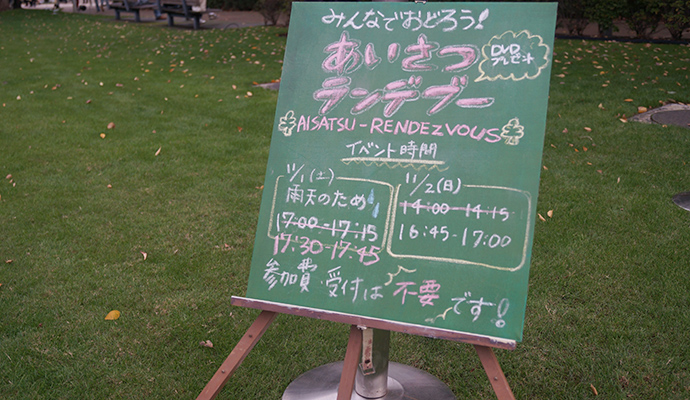 みんなでおどろう!
あいさつ
DVD
プレゼント
ランデブー
AISATSU-RENDEZVOUS
イベント時間
11/1(土)
雨天のため
17:00-17:15
17:30-17:45
11/2(日)
14:00-14:15
16:45-17:00
参加費・受付は不要です!